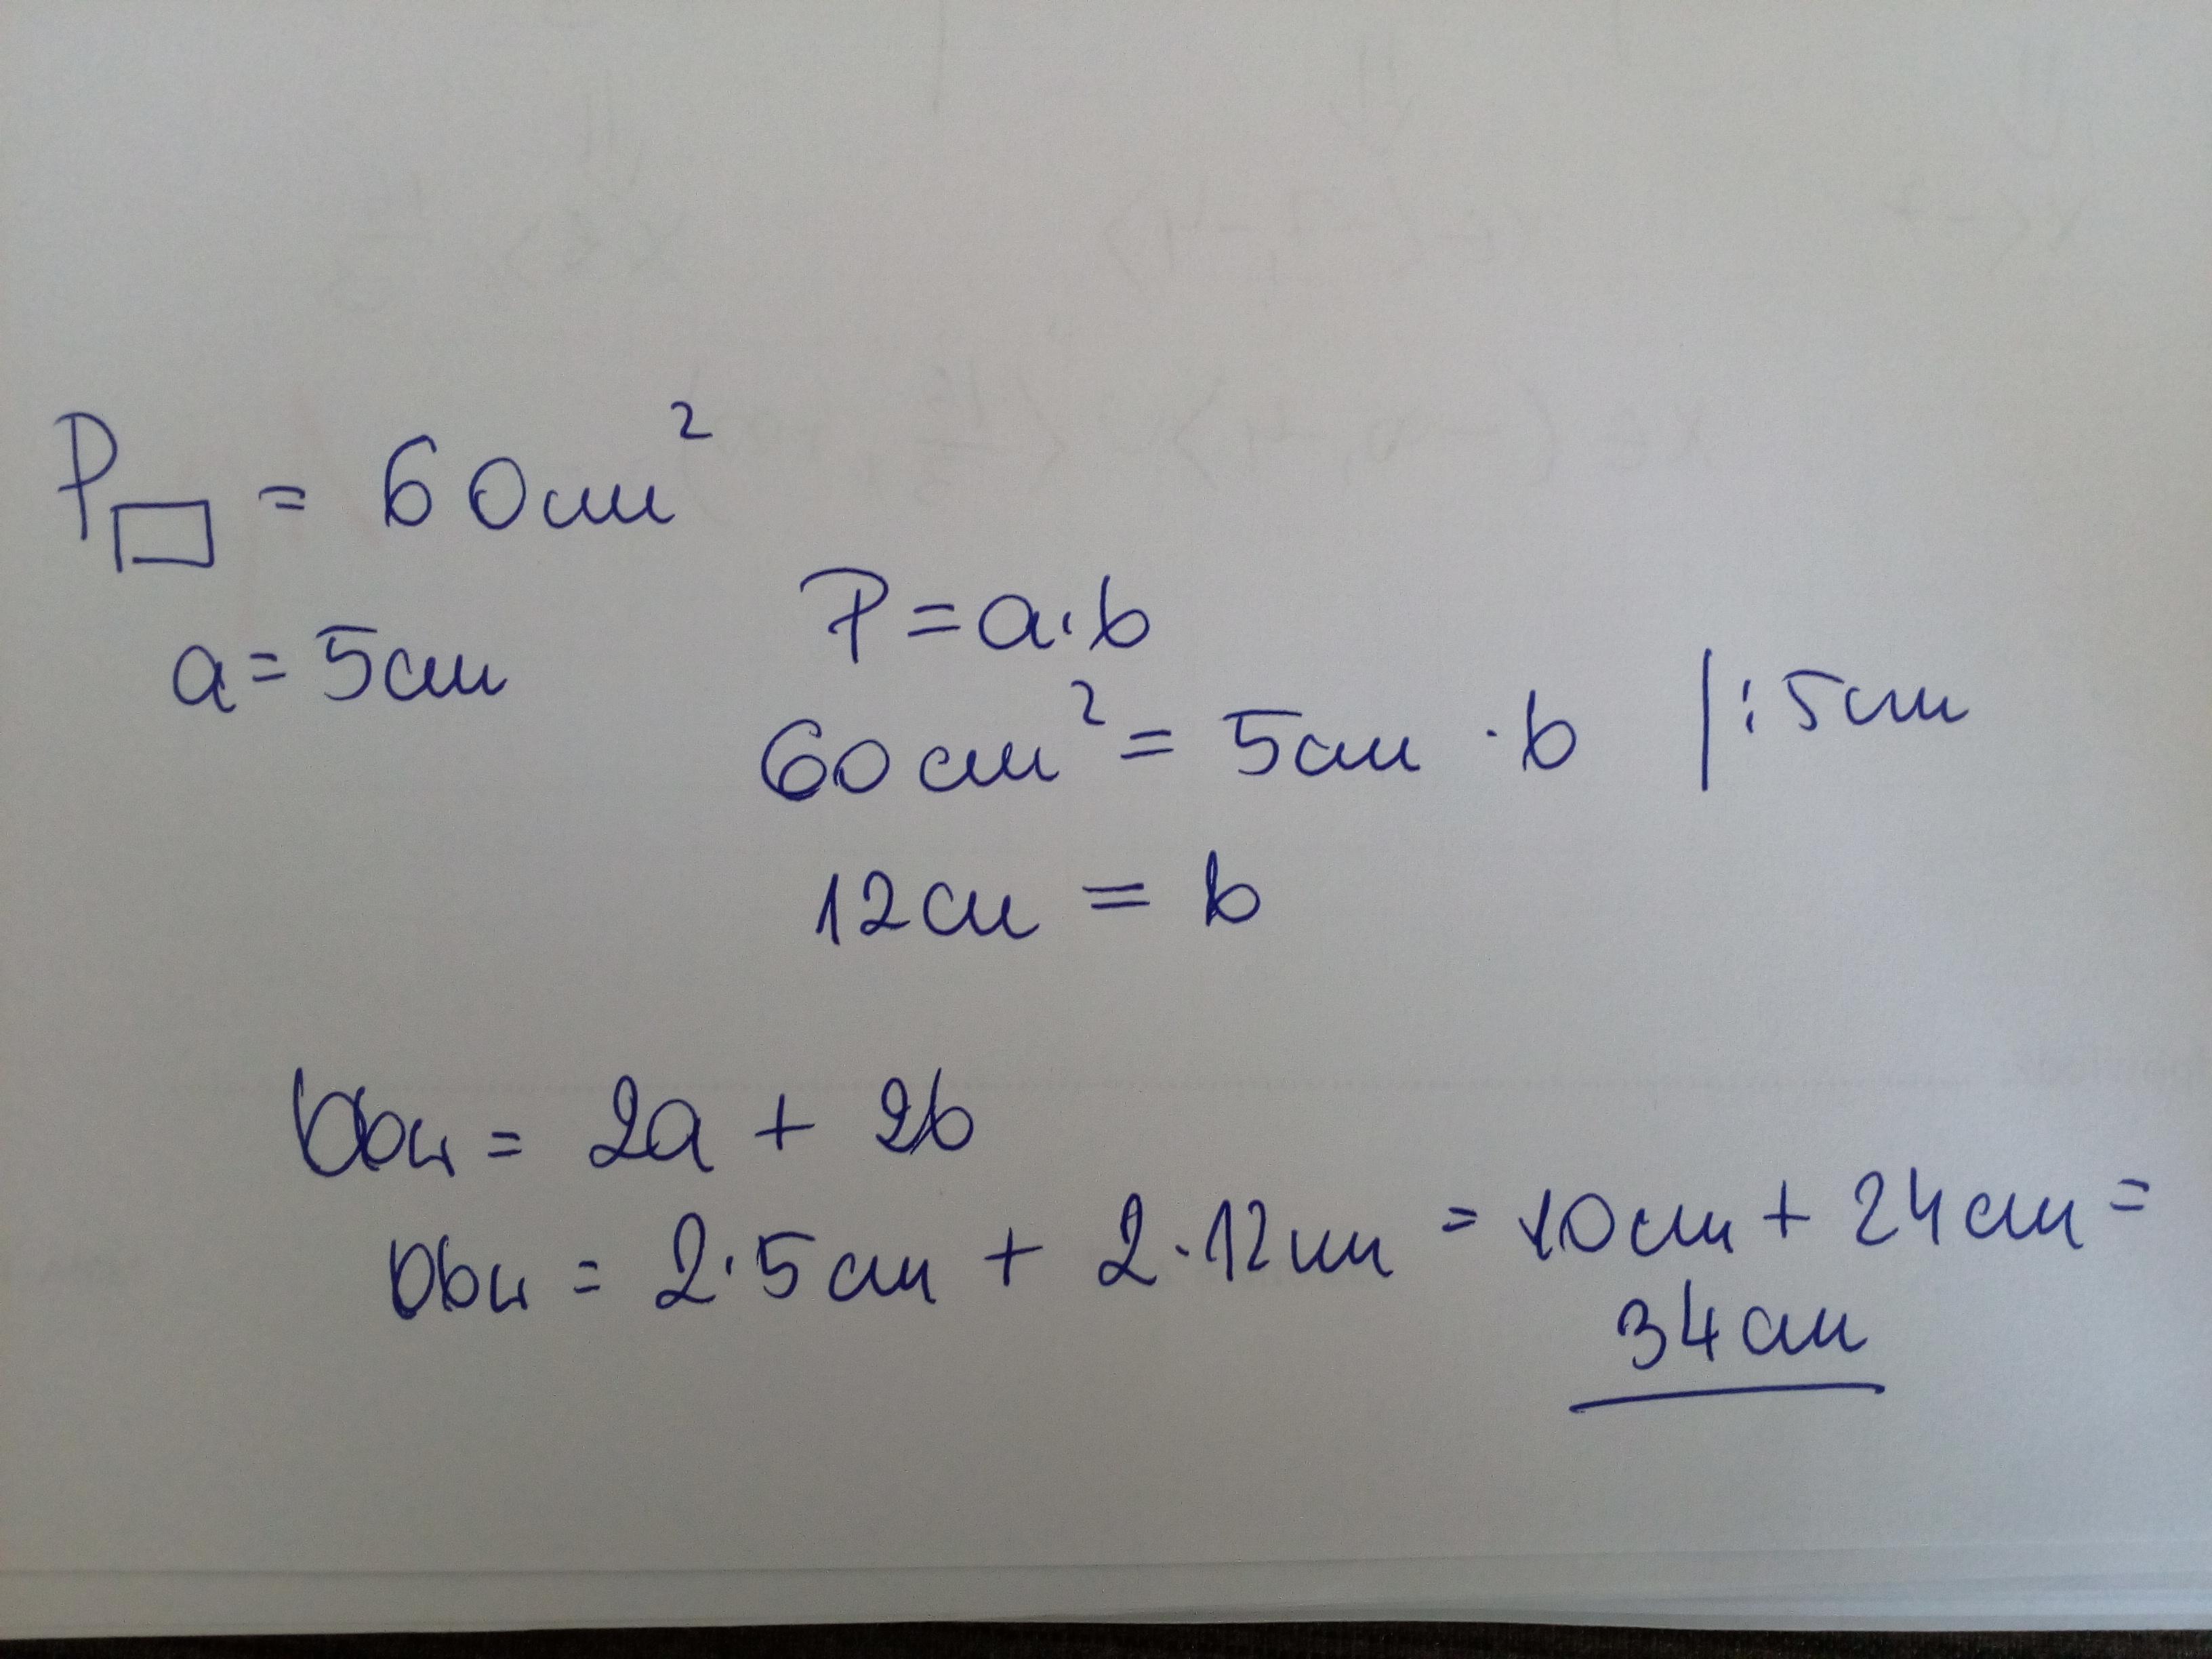 P▭ = 60cm²
a = 5cm
P = a·b
60cm² = 5cm · b |:5cm
12cm = b
Obw = 2a + 2b
Obw = 2·5cm + 2·12cm = 10cm + 24cm =
34cm